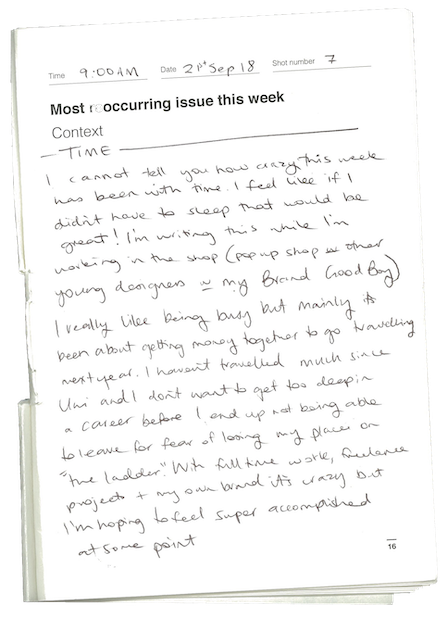 Time 9:00AM Date 21st Sep 18 Shot number 7
Most reoccurring issue this week
Context
— TIME —
I cannot tell you how crazy this week
has been with time. I feel like if I
didn't have to sleep that would be
great! I'm writing this while I'm
working in the shop (pop up shop w other
young designers w my Brand Good Boy)
I really like being busy but mainly its
been about getting money together to go travelling
next year. I haven't travelled much since
Uni and I don't want to get too deep in
a career before I end up not being able
to leave for fear of losing my place on
"the ladder". With full time work, freelance
projects + my own brand it's crazy but
I'm hoping to feel super accomplished
at some point
16